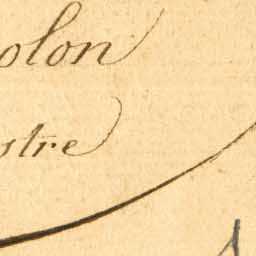 olon
stre